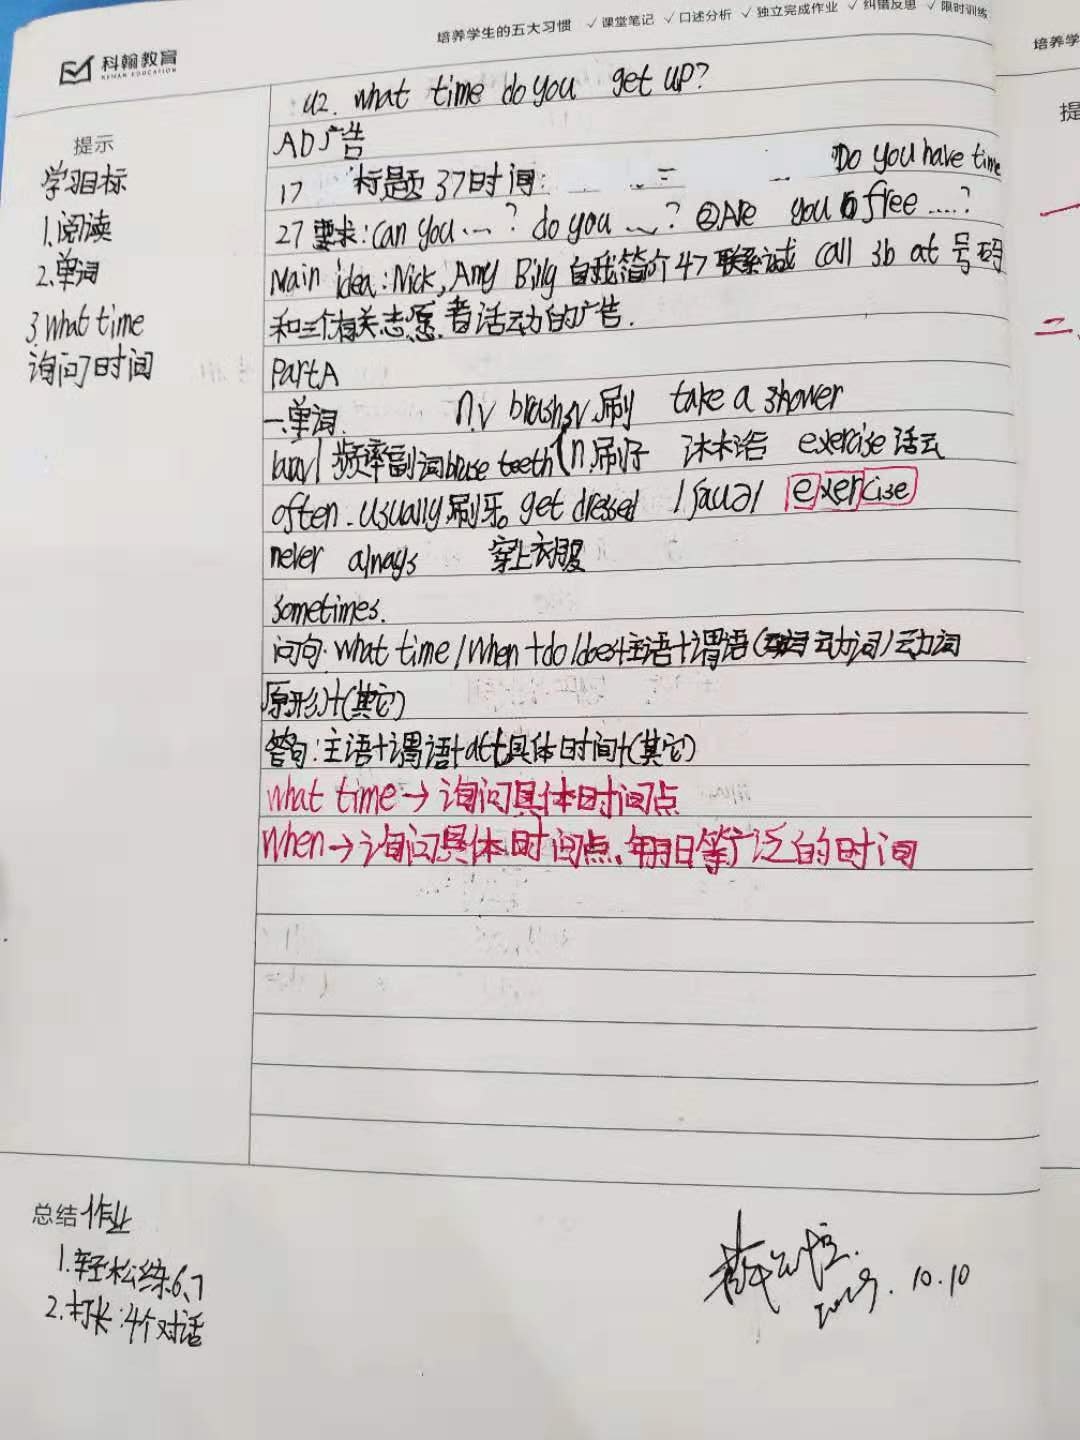 科翰教育
KEHAN EDUCATION
培养学生的五大习惯 ✓课堂笔记 ✓口述分析 ✓独立完成作业 ✓纠错反思 ✓限时训练
培养学
提示
提
学习目标
1.阅读
2.单词
3.What time
询问时间
U2. What time do you get up?
AD广告
17 标题 37时间: Do you have time
27要求:Can you ...? do you ...? ②Are you free ....?
Main idea:Nick, Amy Bing 自我简介 47联系 call 3b at 号码
和三个有关志愿者活动的广告.
Part A
一.单词. n.v brush v.刷 take a shower
频率副词 bruse teeth n.刷子 沐浴 exercise 活云
often. usually 刷牙。get dressed exercise
never always 穿上衣服
sometimes.
问句:what time/When+do/does+主语+谓语(动词)动词
原形)+(其它)
答句:主语+谓语+at+具体时间+(其它)
What time→询问具体时间点
When→询问具体时间点、年月日等广泛的时间
一
二、
总结 作业
1.轻松练6、7
2.打长:4个对话
10.10